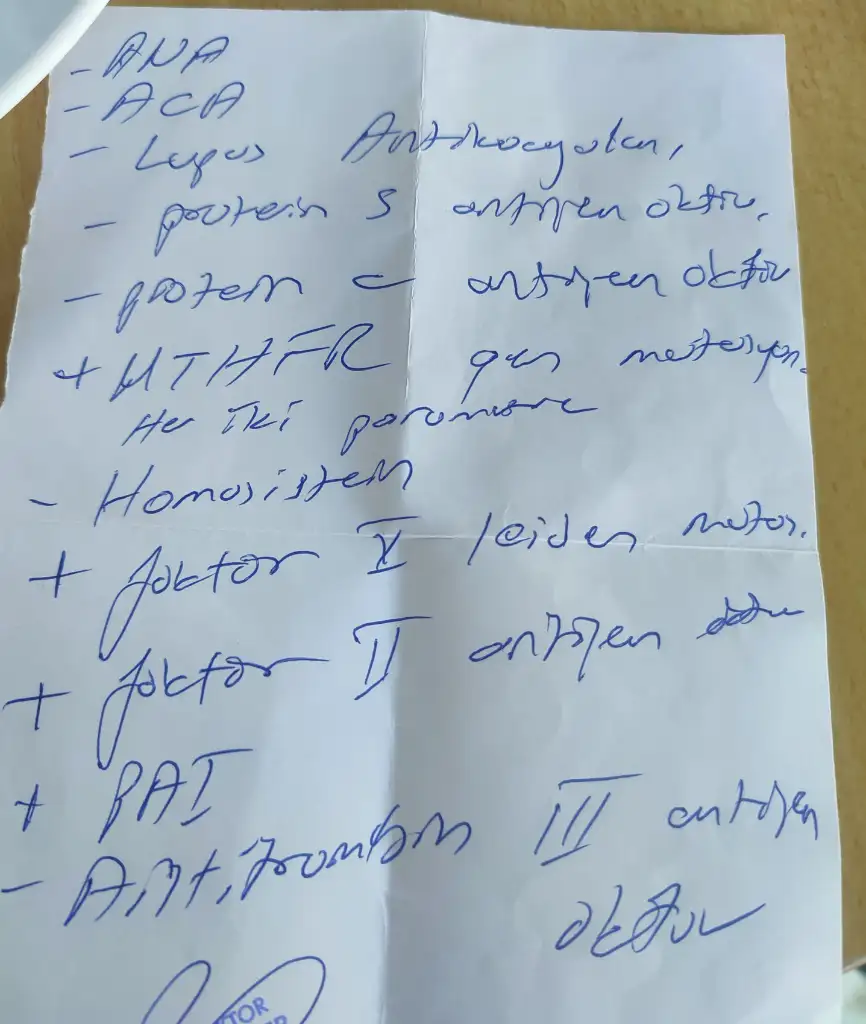 - ANA
- ACA
- Lupus Antikoagulan,
- protein S antijen aktiv.
- protein C antijen aktiv
+ MTHFR gen mutasyon.
Her iki parametre
- Homosistein
+ faktor V leiden mutas.
+ faktor II antijen
+ PAI
- Antitrombin III antijen
aktiv
TOR